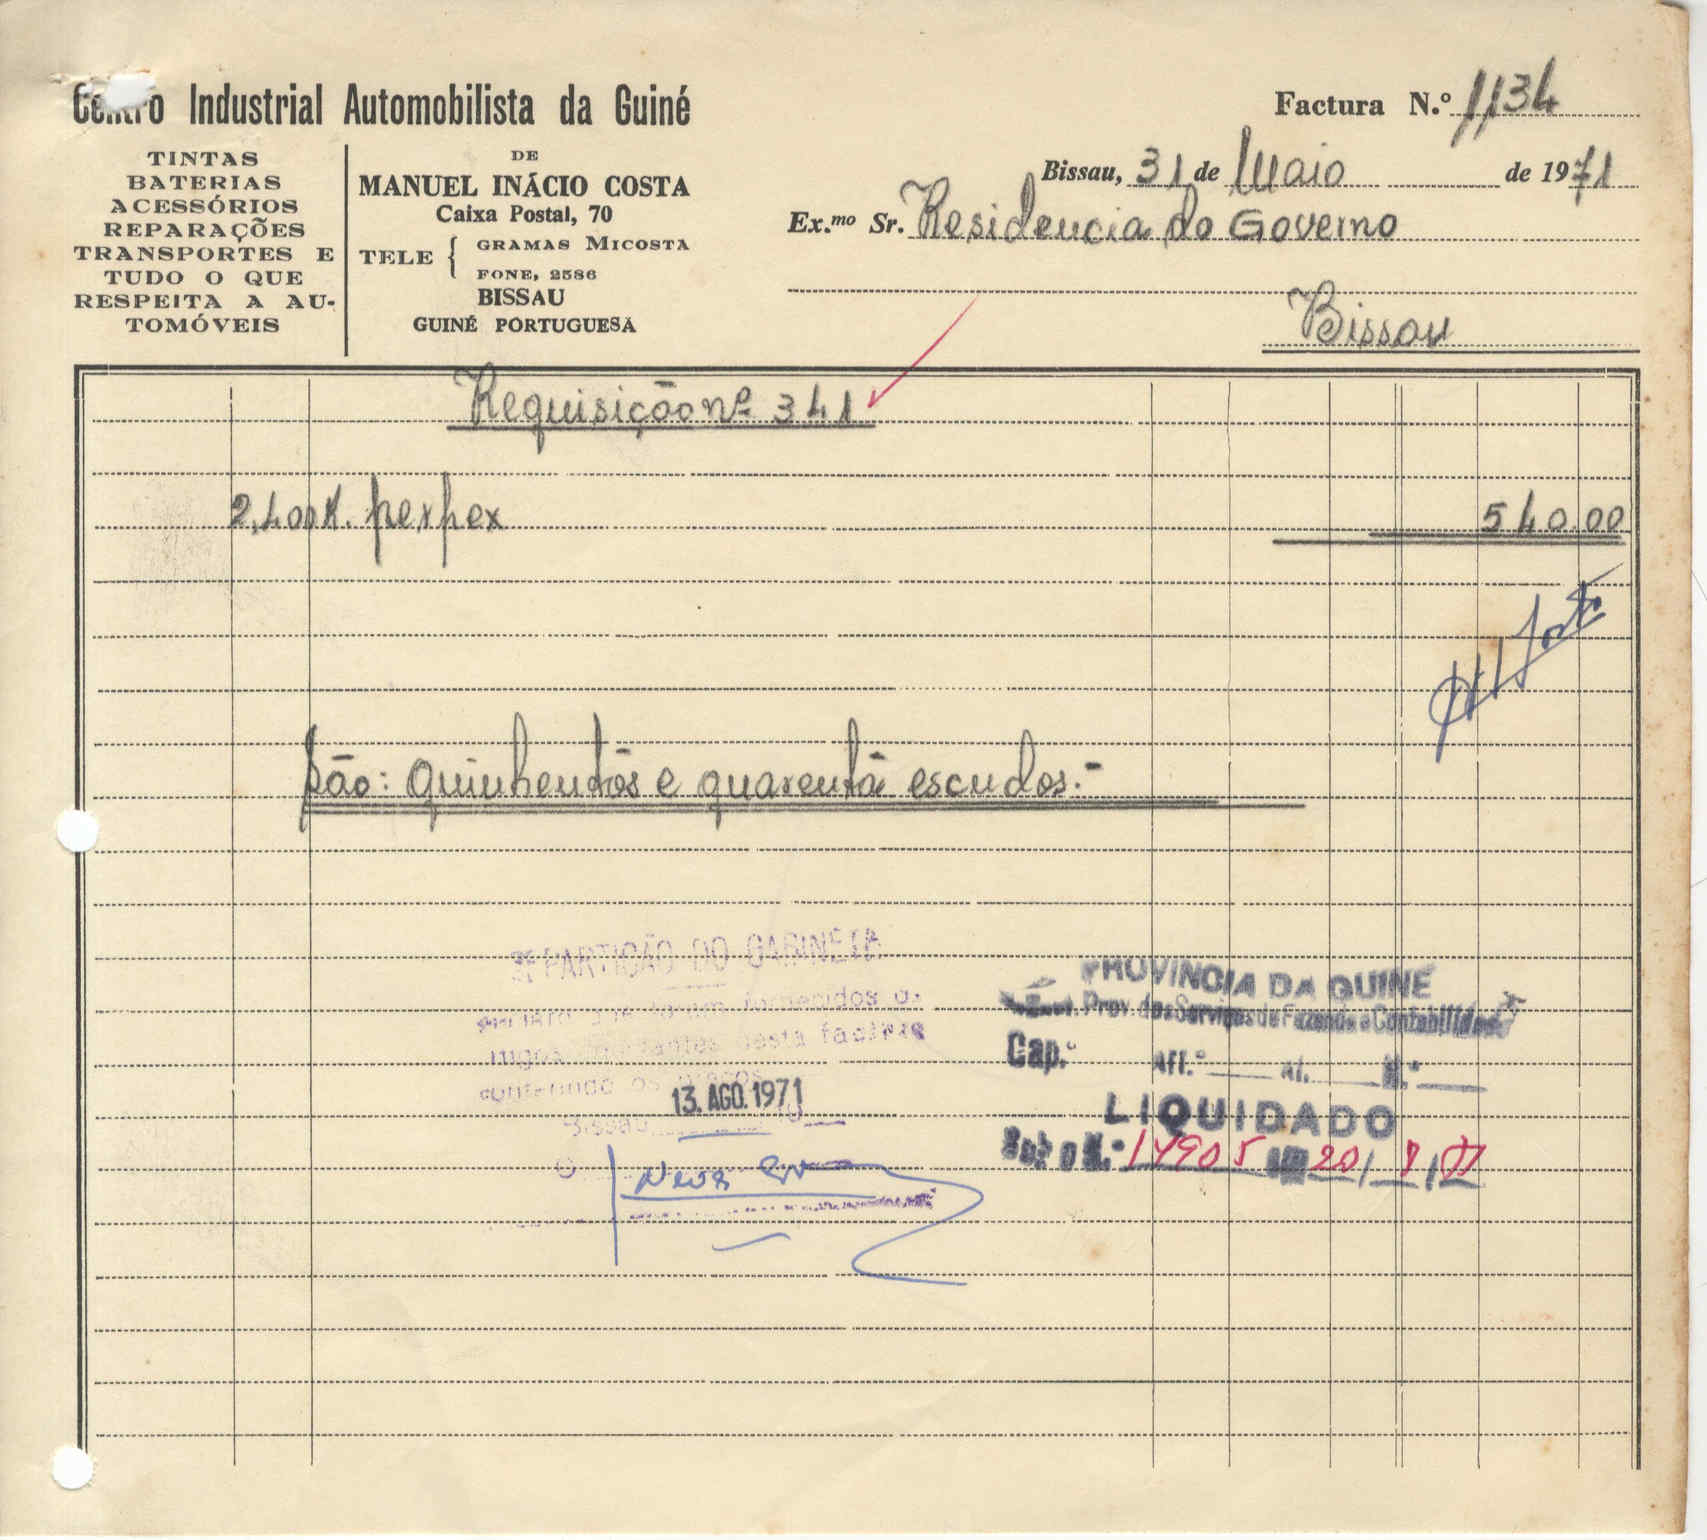 Centro Industrial Automobilista da Guiné
TINTAS
BATERIAS
ACESSÓRIOS
REPARAÇÕES
TRANSPORTES E
TUDO O QUE
RESPEITA A AU-
TOMÓVEIS
DE
MANUEL INÁCIO COSTA
Caixa Postal, 70
TELE { GRAMAS MICOSTA
FONE, 2586
BISSAU
GUINÉ PORTUGUESA
Factura N.º 1134
Bissau, 31 de Maio de 1971
Ex.mo Sr. Residencia do Governo
Bissau
Requisição nº 341
2,400 K. perpex
540.00
São: quinhentos e quarenta escudos.-
REPARTIÇÃO DO GABINETE
que foram fornecidos os
artigos constantes desta factura
contendo os preços
Bissau, 13. AGO. 1971
O
PROVINCIA DA GUINÉ
Prov. dos Serviços de Fazenda e Contabilidade
Cap.º Art.º Al. N.º
LIQUIDADO
Sub o N.º 14905 20/